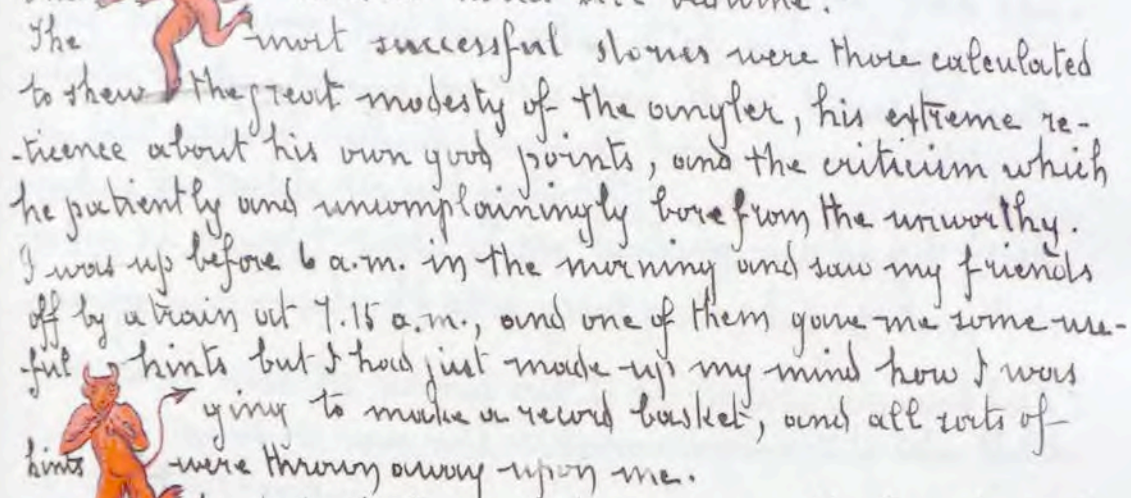 The most successful stories were those calculated
to shew the great modesty of the angler, his extreme re-
-ticence about his own good points, and the criticism which
he patiently and uncomplainingly bore from the unworthy.
I was up before 6 a.m. in the morning and saw my friends
off by a train at 7.15 a.m., and one of them gave me some use-
-ful hints but I had just made up my mind how I was
going to make a record basket, and all sorts of
hints were thrown away upon me.